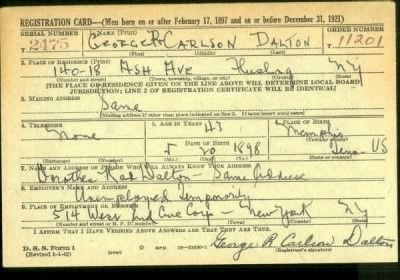 REGISTRATION CARD—(Men born on or after February 17, 1897 and on or before December 31, 1921)
SERIAL NUMBER 1. NAME (Print) ORDER NUMBER
2475 George R Carlson Dalton 11201
(First) (Middle) (Last)
2. PLACE OF RESIDENCE (Print)
140-18 Ash Ave Flushing NY
(Number and street) (Town, township, village, or city) (County) (State)
[THE PLACE OF RESIDENCE GIVEN ON THE LINE ABOVE WILL DETERMINE LOCAL BOARD
JURISDICTION; LINE 2 OF REGISTRATION CERTIFICATE WILL BE IDENTICAL]
3. MAILING ADDRESS
Same
[Mailing address if other than place indicated on line 2. If same insert word same]
4. TELEPHONE 5. AGE IN YEARS 6. PLACE OF BIRTH
None 43 Memphis
DATE OF BIRTH (Town or county)
20 1898 Tenn US
(Exchange) (Number) (Mo.) (Day) (Yr.) (State or country)
7. NAME AND ADDRESS OF PERSON WHO WILL ALWAYS KNOW YOUR ADDRESS
Dorothea Dalton Same Address
8. EMPLOYER'S NAME AND ADDRESS
Unemployed temporary
9. PLACE OF EMPLOYMENT OR BUSINESS
514 West End Ave New York NY
(Number and street or R. F. D. number) (Town) (County) (State)
I AFFIRM THAT I HAVE VERIFIED ABOVE ANSWERS AND THAT THEY ARE TRUE.
D. S. S. Form 1
(Revised 1-1-42) (over) George R Carlson Dalton
(Registrant's signature)